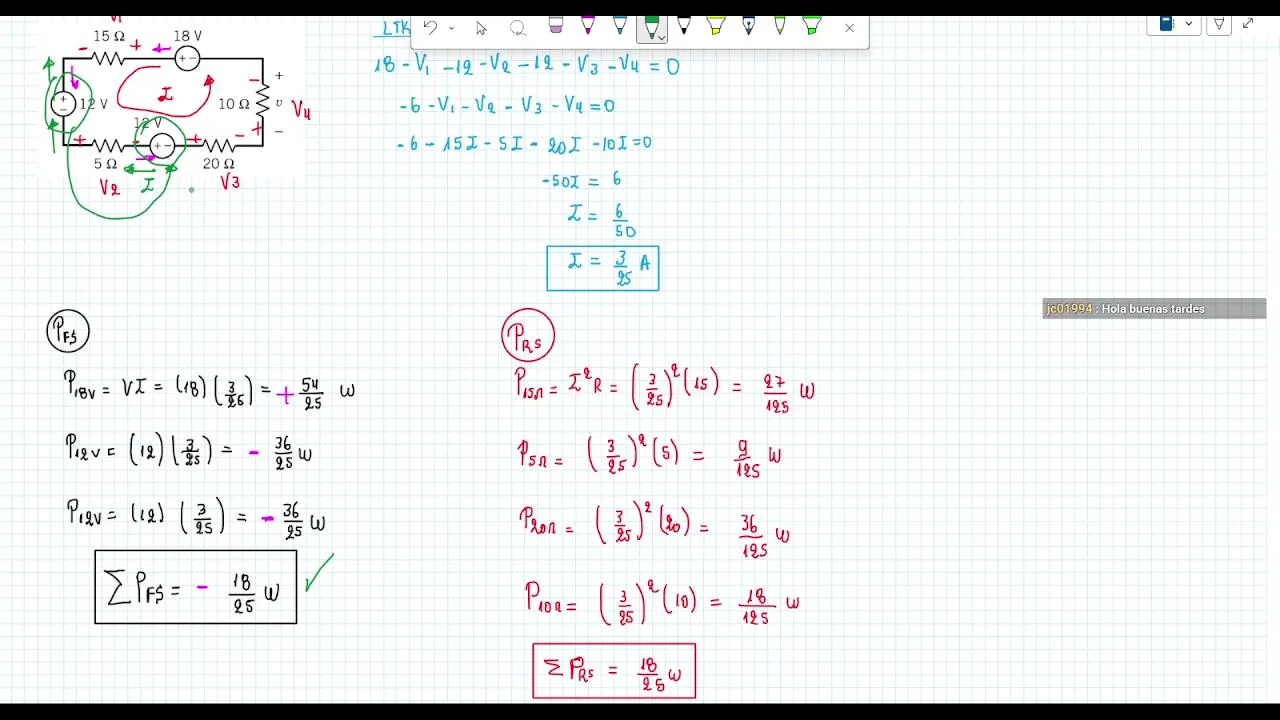 V1
15 Ω - + 18 V
+ -
12 V
I
10 Ω
+
v
-
V4
12 V
+ -
5 Ω
20 Ω
V2
I
V3
LTK
18 - V1 - 12 - V2 - 12 - V3 - V4 = 0
-6 - V1 - V2 - V3 - V4 = 0
-6 - 15I - 5I - 20I - 10I = 0
-50I = 6
I = 6/50
I = 3/25 A
jc01994 : Hola buenas tardes
PFS
P18V = VI = (18)(3/25) = + 54/25 W
P12V = (12)(3/25) = - 36/25 W
P12V = (12)(3/25) = - 36/25 W
∑ PFS = - 18/25 W
PRS
P15Ω = I²R = (3/25)²(15) = 27/125 W
P5Ω = (3/25)²(5) = 9/125 W
P20Ω = (3/25)²(20) = 36/125 W
P10Ω = (3/25)²(10) = 18/125 W
∑ PRS = 18/25 W